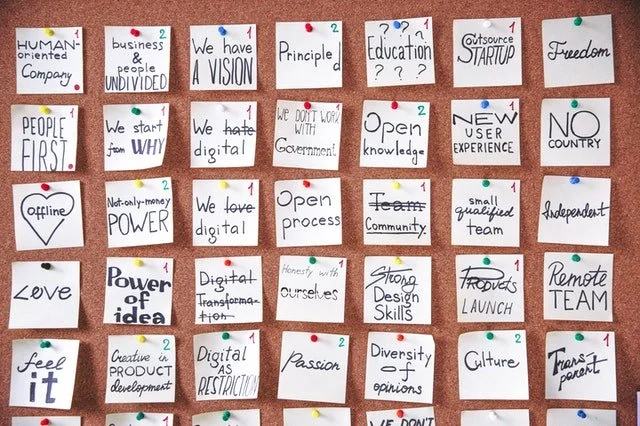 HUMAN-
oriented
Company
2
business
&
people
UNDIVIDED
1
We have
A VISION
2
Principled
1
Education
? ? ?
? ? ?
1
Outsource
STARTUP
Freedom
PEOPLE
FIRST.
1
We start
from WHY
1
We hate
digital
1
WE DON'T WORK
WITH
Government
2
Open
knowledge
1
NEW
USER
EXPERIENCE
NO
COUNTRY
offline
2
Not-only-money
POWER
1
We love
digital
1
Open
process
1
Team
Community
1
small
qualified
team
Independent
LOVE
1
Power
of
idea
1
Digital
Transforma-
tion
1
Honesty with
ourselves
Strong
Design
Skills
1
Products
LAUNCH
Remote
TEAM
feel
it
2
Creative in
PRODUCT
development
1
Digital
AS
RESTRICTION
2
Passion
2
Diversity
of
opinions
2
Culture
1
Trans
parent
WE DON'T